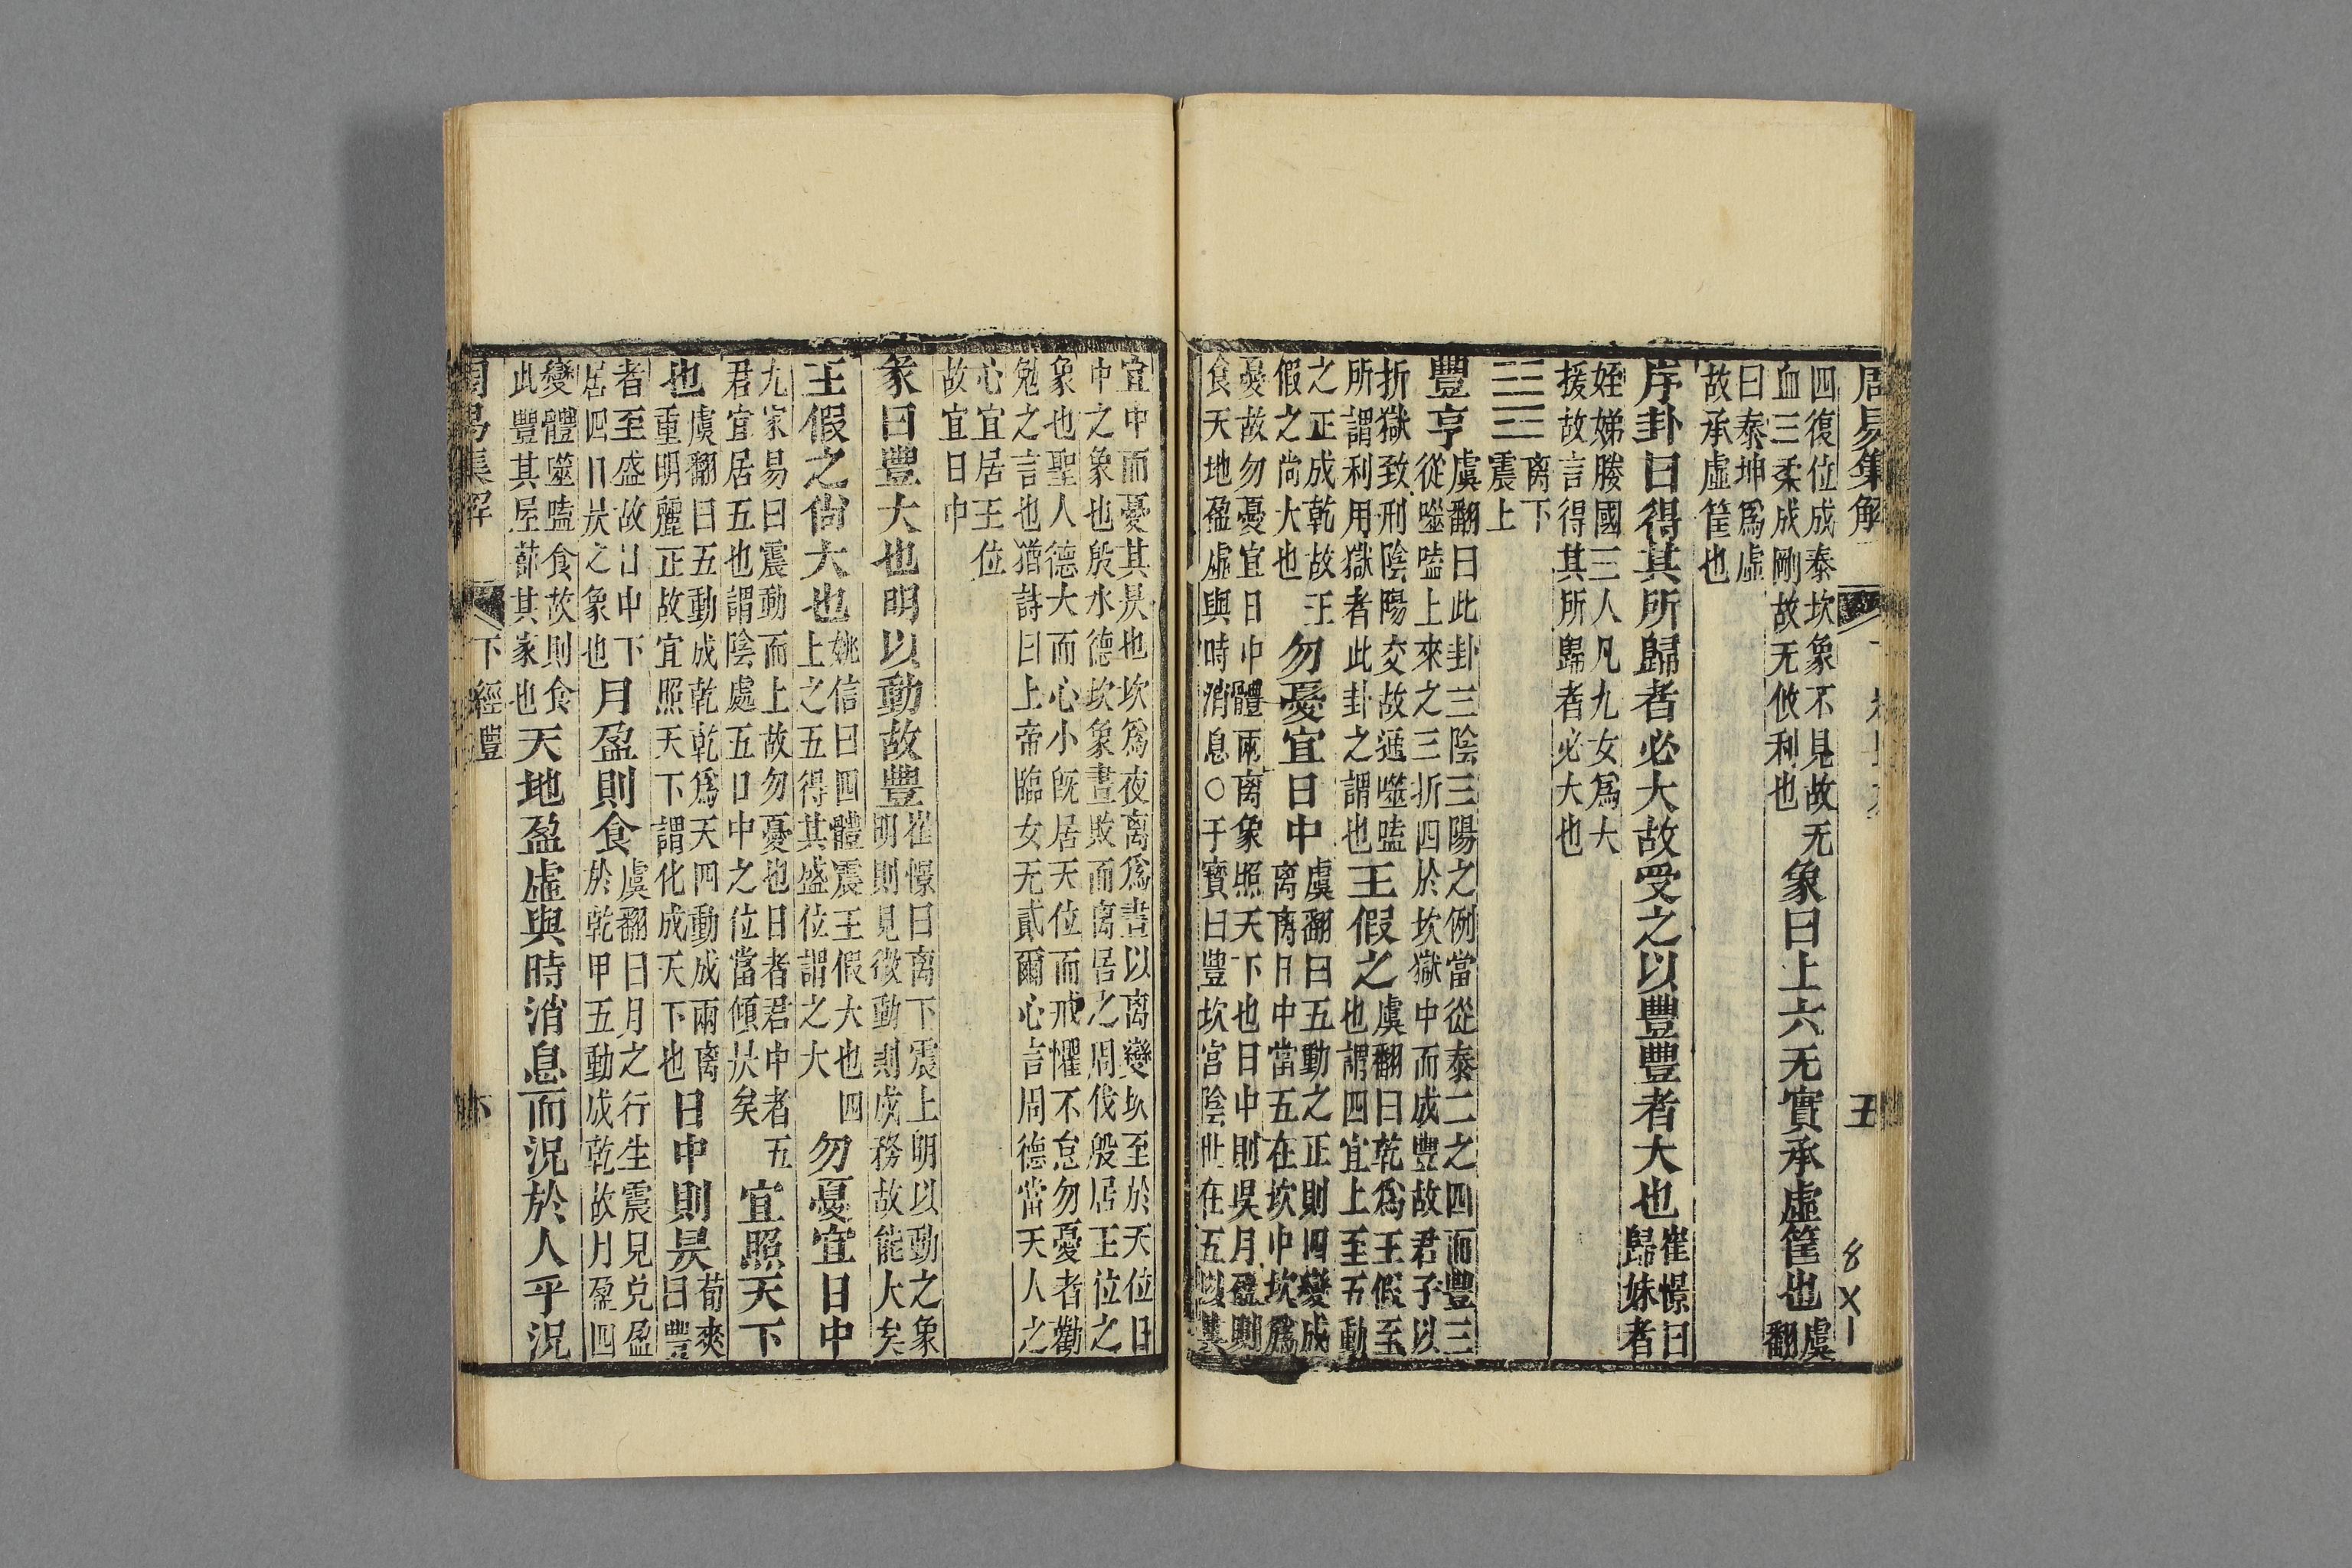 周易集解
五
8X一
四復位成泰坎象不見故无
血三柔成剛故无攸利也
象曰上六无實承虛筐也
虞
翻
曰泰坤爲虛
故承虛筐也
序卦曰得其所歸者必大故受之以豐豐者大也
崔憬曰
歸妹者
姪娣媵國三人凡九女爲大
援故言得其所歸者必大也
离下
震上
豐亨
虞翻曰此卦三陰三陽之例當從泰二之四而豐三
從噬嗑上來之三折四於坎獄中而成豐故君子以
折獄致刑陰陽交故通噬嗑
所謂利用獄者此卦之謂也
王假之
虞翻曰乾爲王假至
也謂四宜上至五動
之正成乾故王
假之尚大也
勿憂宜日中
虞翻曰五動之正則四變成
离离日中當五在坎中坎爲
憂故勿憂宜日中體兩离象照天下也日中則昃月盈則
食天地盈虛與時消息○干寶曰豐坎宮陰世在五以其
宜中而憂其昃也坎爲夜离爲晝以离變坎至於天位日
中之象也殷水德坎象晝敗而离居之周伐殷居王位之
象也聖人德大而心小旣居天位而戒懼不怠勿憂者勸
勉之言也猶詩曰上帝臨女无貳爾心言周德當天人之
心宜居王位
故宜日中
彖曰豐大也明以動故豐
崔憬曰离下震上明以動之象
明則見微動則成務故能大矣
王假之尚大也
姚信曰四體震王假大也四
上之五得其盛位謂之大
勿憂宜日中
九家易曰震動而上故勿憂也日者君中者五
君宜居五也謂陰處五日中之位當傾昃矣
宜照天下
也
虞翻曰五動成乾乾爲天四動成兩离
重明麗正故宜照天下謂化成天下也
日中則昃
荀爽
曰豐
者至盛故日中下
居四日昃之象也
月盈則食
虞翻曰月之行生震見兌盈
於乾甲五動成乾故月盈四
變體噬嗑食故則食
此豐其屋蔀其家也
天地盈虛與時消息而況於人乎況
周易集解
下經豐